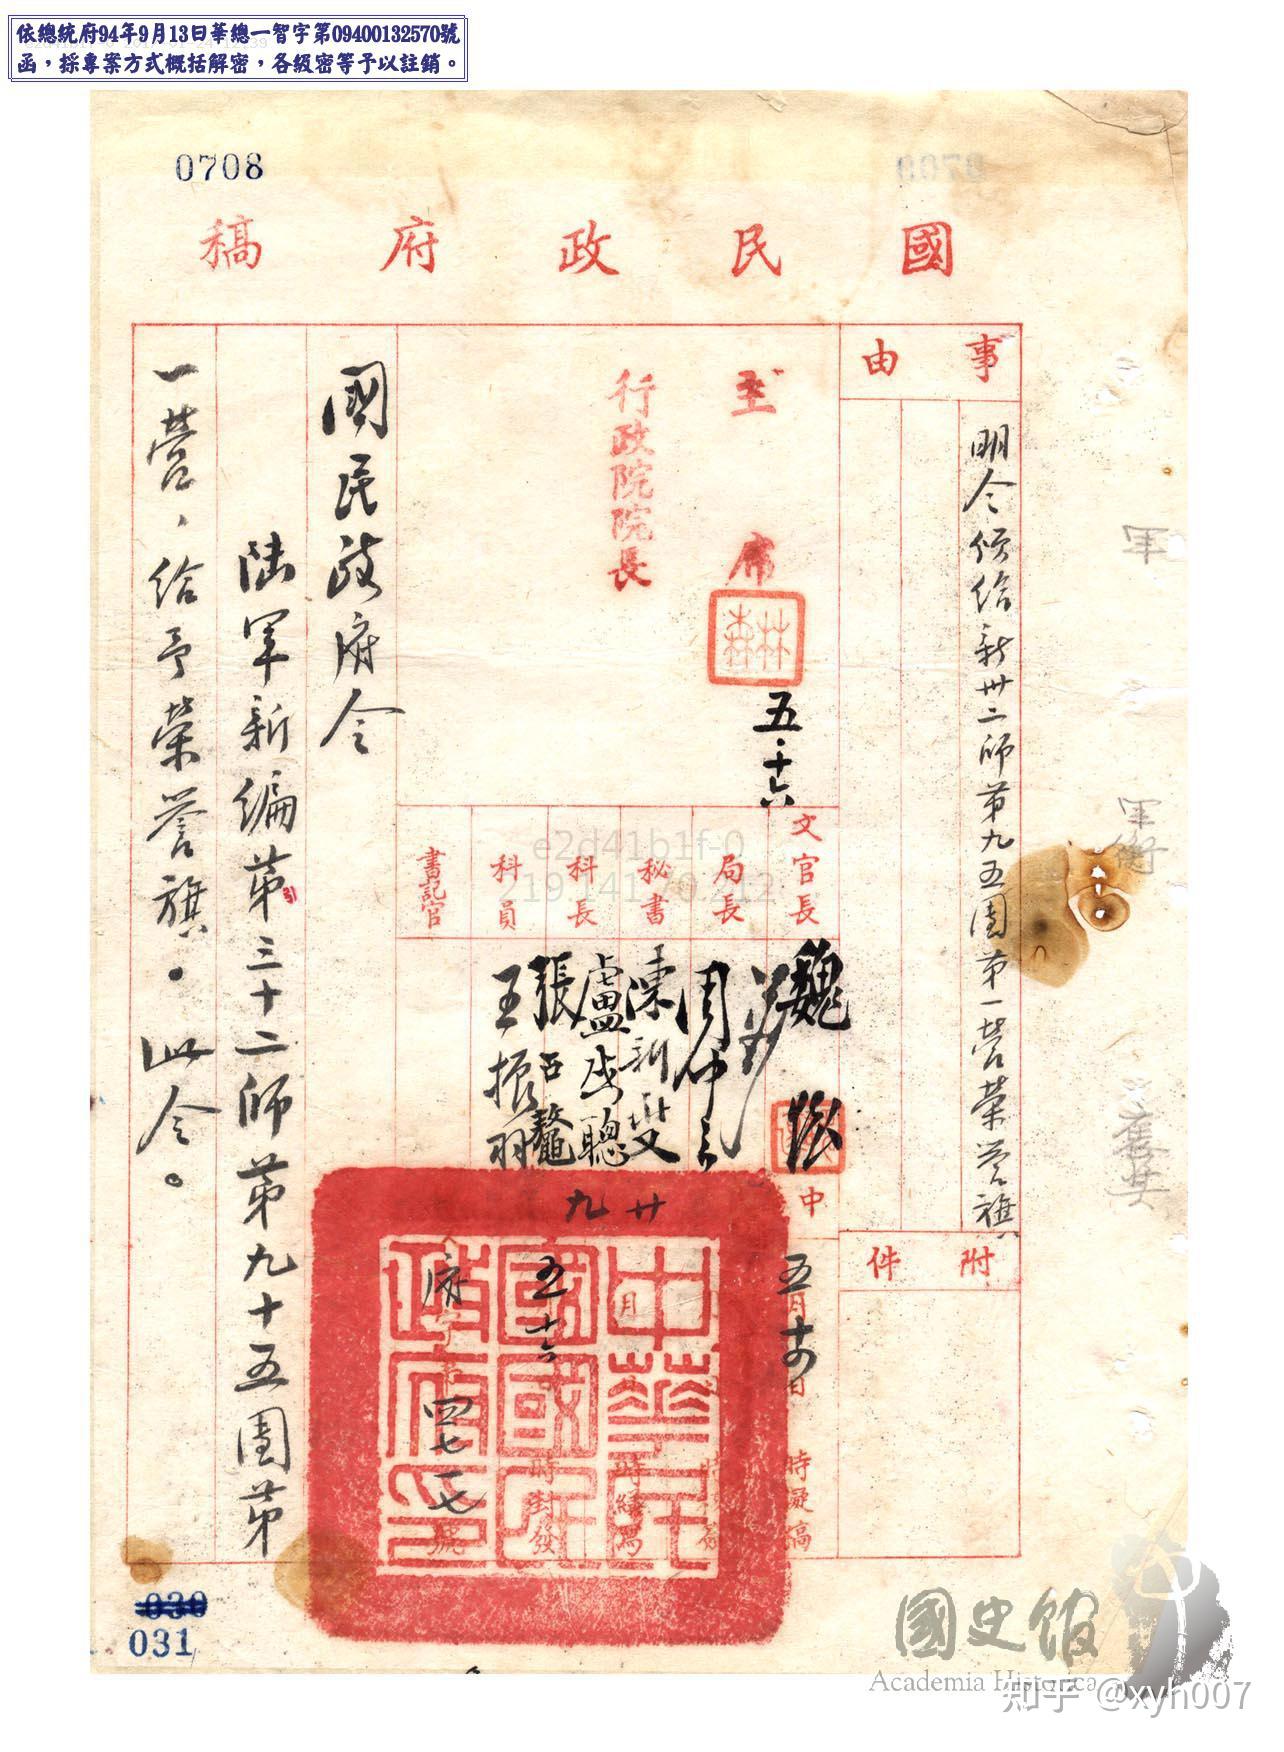 依總統府94年9月13日華總一智字第09400132570號
函，採專案方式概括解密，各級密等予以註銷。
0708
國民政府稿
事由
明令頒給新卅二師第九五團第一營榮譽旗
附件
主席
林森
五·十六
行政院院長
文官長
魏懷
局長
周仲良
秘書
陳新燮
科長
盧盛聰
張
鼇
科員
王振羽
書記官
中
五月十四日
時擬稿
時繕寫
月
廿九
五十六
時封發
府字第四七七號
中華民國國民政府印
國民政府令
陸軍新編第三十二師第九十五團第
一營，給予榮譽旗。此令。
軍
軍衡
舊獎
030
031
e2d41b1f-0
219.141.70.212
國史館
Academia Historica
知乎 @xyh007